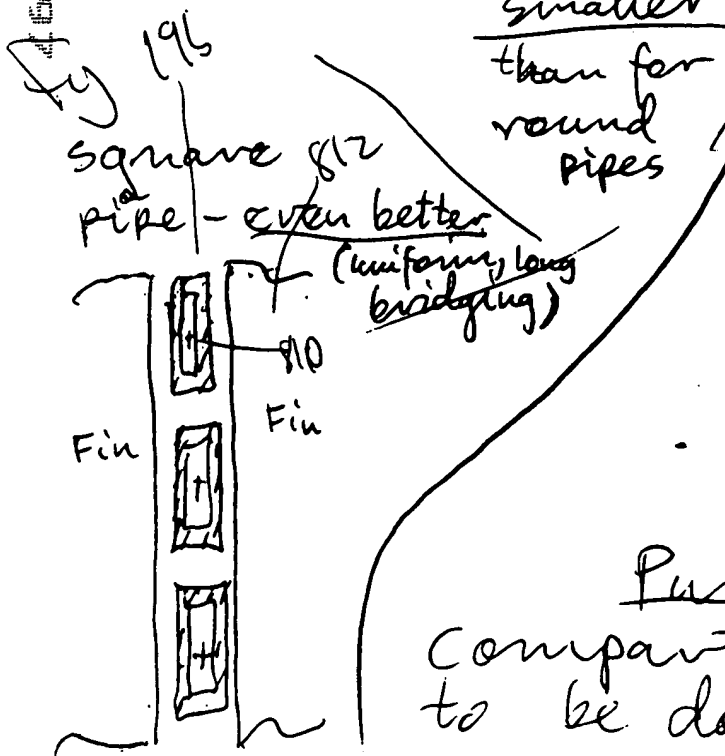 Fig 196
smaller
than for
round
pipes
square 812
pipe - even better
(uniform, long
bridging)
810
Fin
Fin
to be